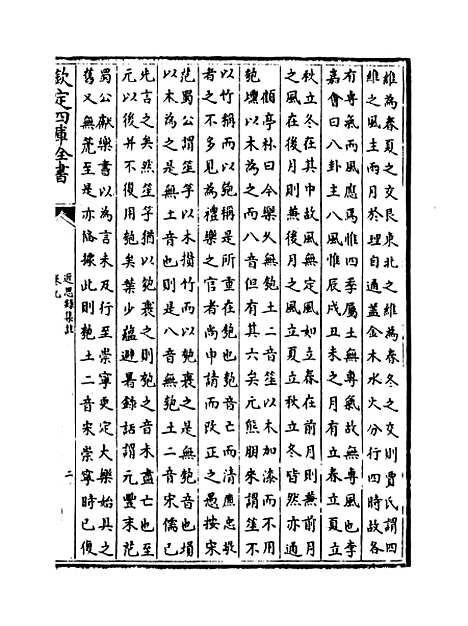 維為春夏之交艮東北之維為春冬之交則賈氏謂四
維之風主兩月於理自通蓋金木水火分行四時故各
有專氣而風應焉惟四季屬土無專氣故無專風也李
嘉會曰八卦主八風惟辰戌丑未之月有立春立夏立
秋立冬在其中故風無定風如立春在前月則兼前月
之風在後月則兼後月之風立夏立秋立冬皆然亦通
顧亭林曰今樂久無匏土二音笙以木加漆而不用
匏壎以木為之而八音但有其六矣元熊朋來謂笙不
以竹稱而以匏稱是所重在匏也匏音亡而清廉忠敬
者之不多見為禮樂之官者尚申請而改正之愚按宋
范蜀公謂笙竽以木攢竹而以匏裹之是無匏音也塤
以木為之是無土音也則是八音無匏土二音宋儒已
先言之矣然笙竽猶以匏裹之則匏之音未盡亡也至
元以後并不復用匏矣葉少蘊避暑錄話謂元豐末范
蜀公獻樂書以為言未及行至崇寧更定大樂始具之
舊又無箎至是亦備據此則匏土二音宋崇寧時已復
欽定四庫全書
近思錄集註
卷九
二